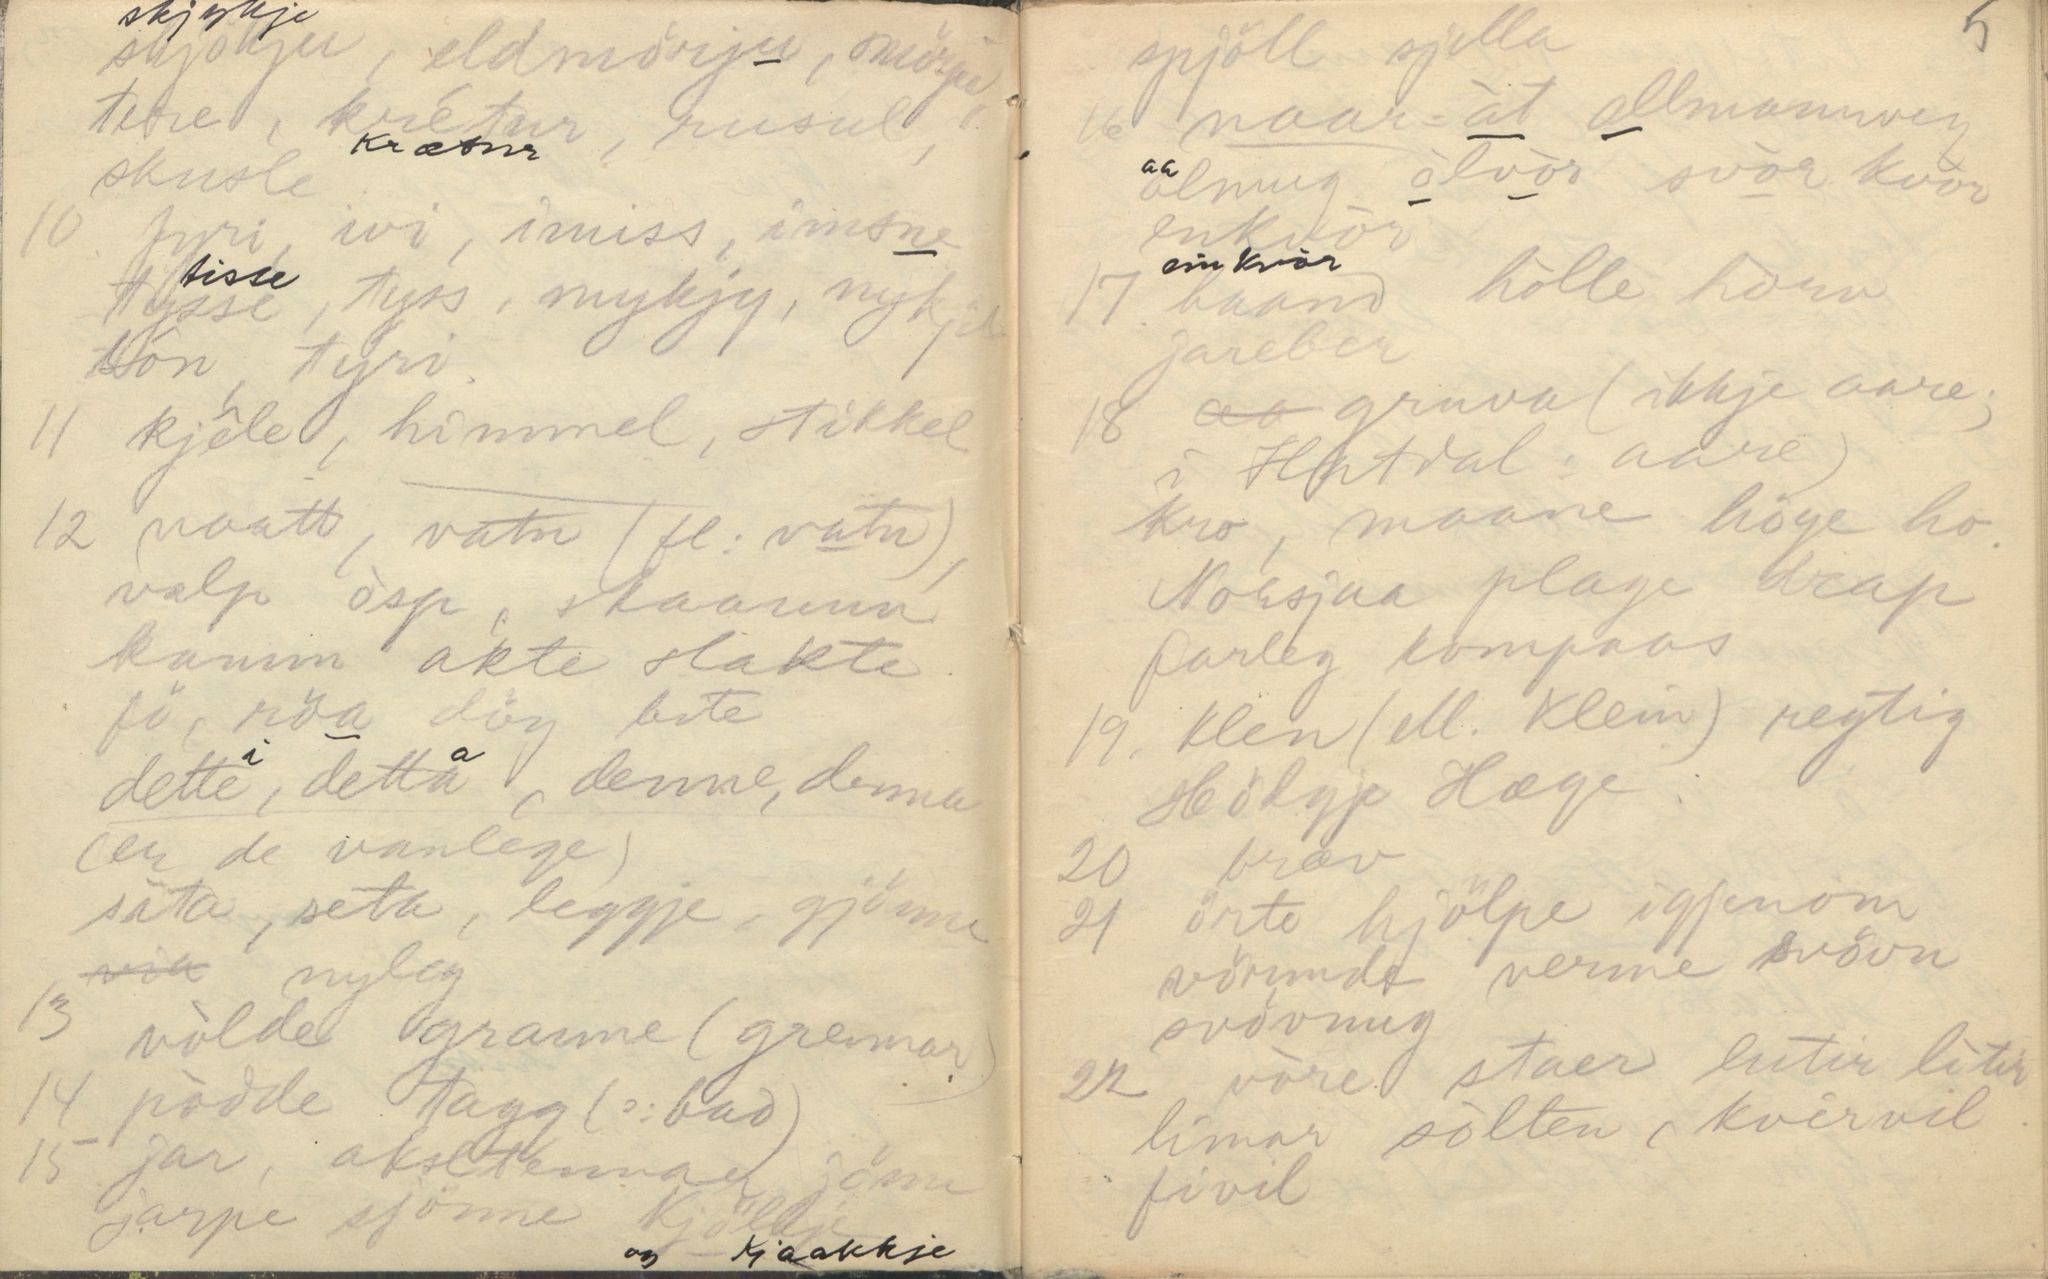 skjykje
skjökju, eldmörju, mörje,
tere, krétur, rusul,
krætur
skusle
10 fyri, ivi, imiss, imsne
tisse
tysse, tyss, mykjy, nykjel
tón, tyri.
11 kjéle, himmel, stikkel
12 vaatt, vatn (fl: vatn),
valp òsp, skaaunn
kamm akte slakte
fö, röa dög bite
i a
dette, detta, denne, denna
(er de vanlege)
sita, seta, leggje, gjönne
via nyleg
13 vòlde granne (grennar)
14 pòdde tagg (ɔ: bad)
15 jar, akseltennar, jönn
jarpe sjönne kjölkje
og kjaakkje
5
spjöll sjella
16 naar-àt allmannveg
aa
òlmug òlvòr svòr kvòr
enkvòr
einkvòr
17 baand hòlle hòrv
jareber
18 aa gruva (ikkje aare;
i Hatdal: aare)
kro, maane höge ho.
Norsjaa plage drap
farleg kompaas
19. klen (ell. klein) regtig
Hölgje Hæge.
20 bræv
21 örte hjölpe igjenom
vörmde verme svövn
svövnug
22 vòre staer lutir litir
limar sòlten, kvèrvil
fivil